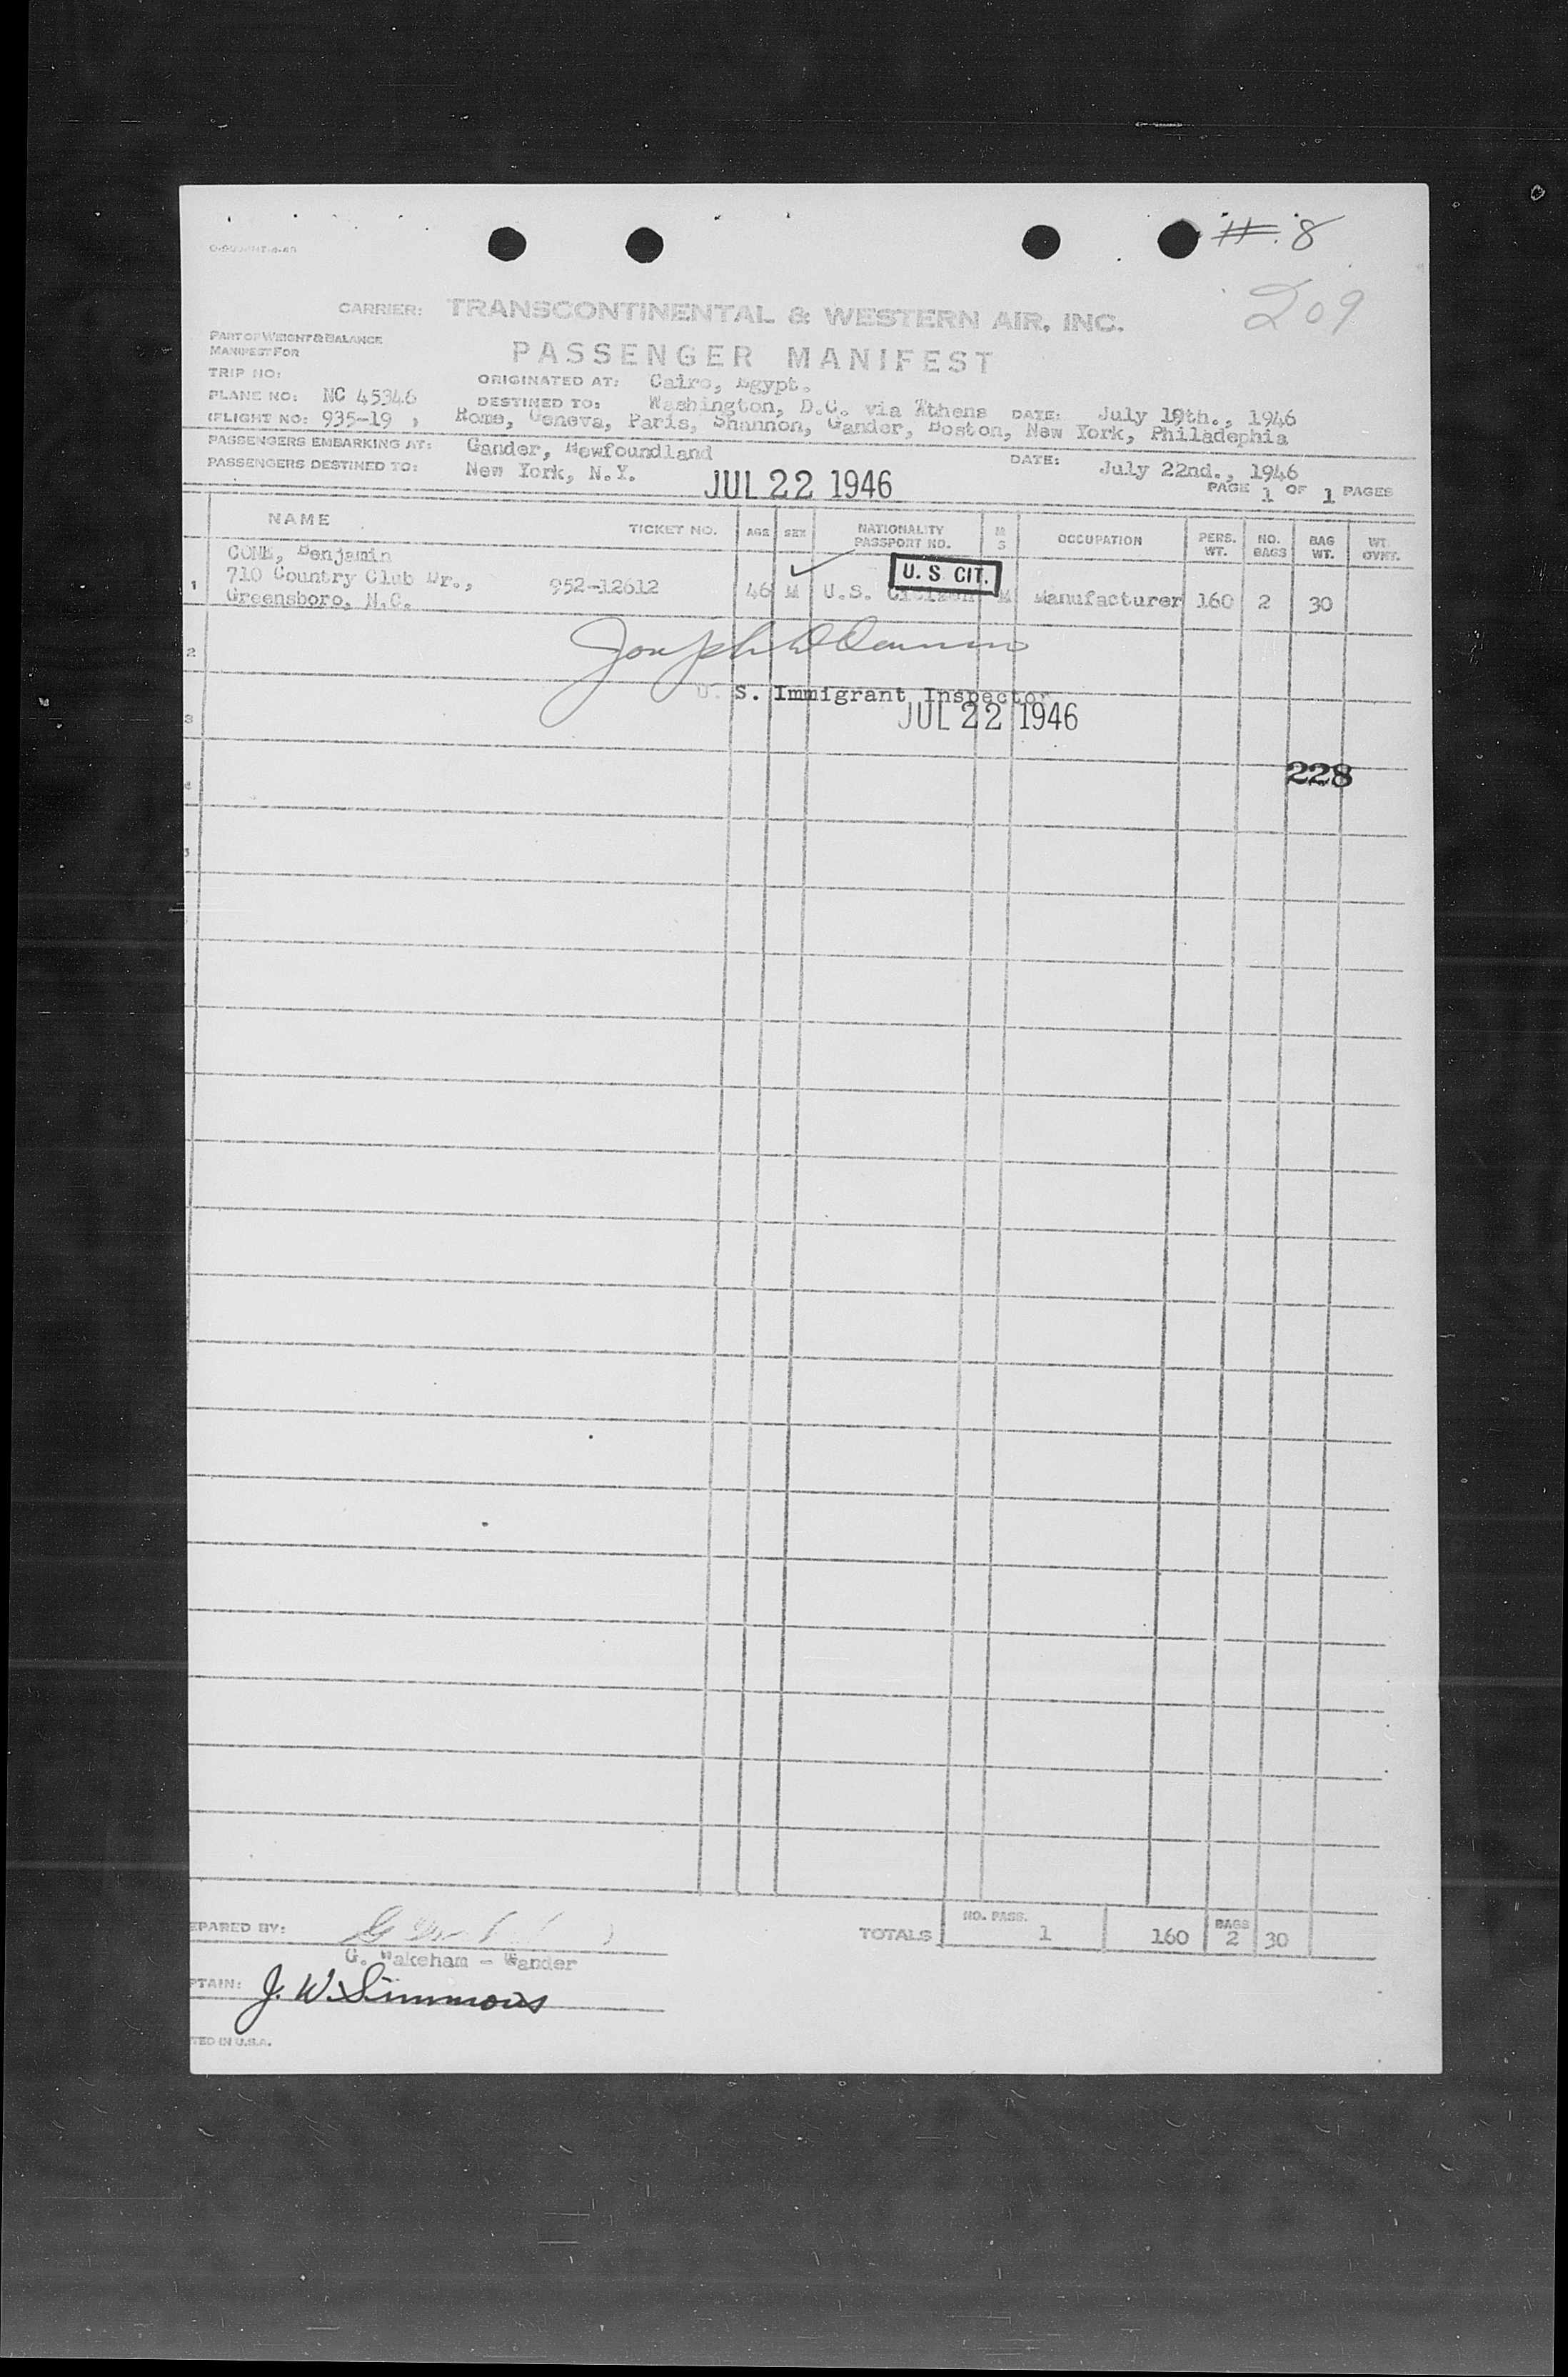 #8
209
CARRIER: TRANSCONTINENTAL & WESTERN AIR, INC.
PART OF WEIGHT & BALANCE
MANIFEST FOR
PASSENGER MANIFEST
TRIP NO:
ORIGINATED AT: Cairo, Egypt.
PLANE NO: NC 45346
DESTINED TO: Washington, D.C. via Athens DATE: July 19th., 1946
(FLIGHT NO: 935-19 , Rome, Geneva, Paris, Shannon, Gander, Boston, New York, Philadephia
PASSENGERS EMBARKING AT: Gander, Newfoundland
DATE: July 22nd., 1946
PASSENGERS DESTINED TO: New York, N.Y.
JUL 22 1946
PAGE 1 OF 1 PAGES
NAME TICKET NO. AGE SEX NATIONALITY PASSPORT NO. M S OCCUPATION PERS. WT. NO. BAGS BAG WT. WT. OVWT.
CONE, Benjamin
U. S CIT.
1 710 Country Club Dr., 952-12612 46 M U.S. Citizen M Manufacturer 160 2 30
Greensboro, N.C.
2
U. S. Immigrant Inspector
JUL 22 1946
3
228
4
5
EPARED BY:
G. Wakeham - Gander
TOTALS NO. PASS. 1 160 BAGS 2 30
PTAIN: J. W. Simmons
TED IN U.S.A.